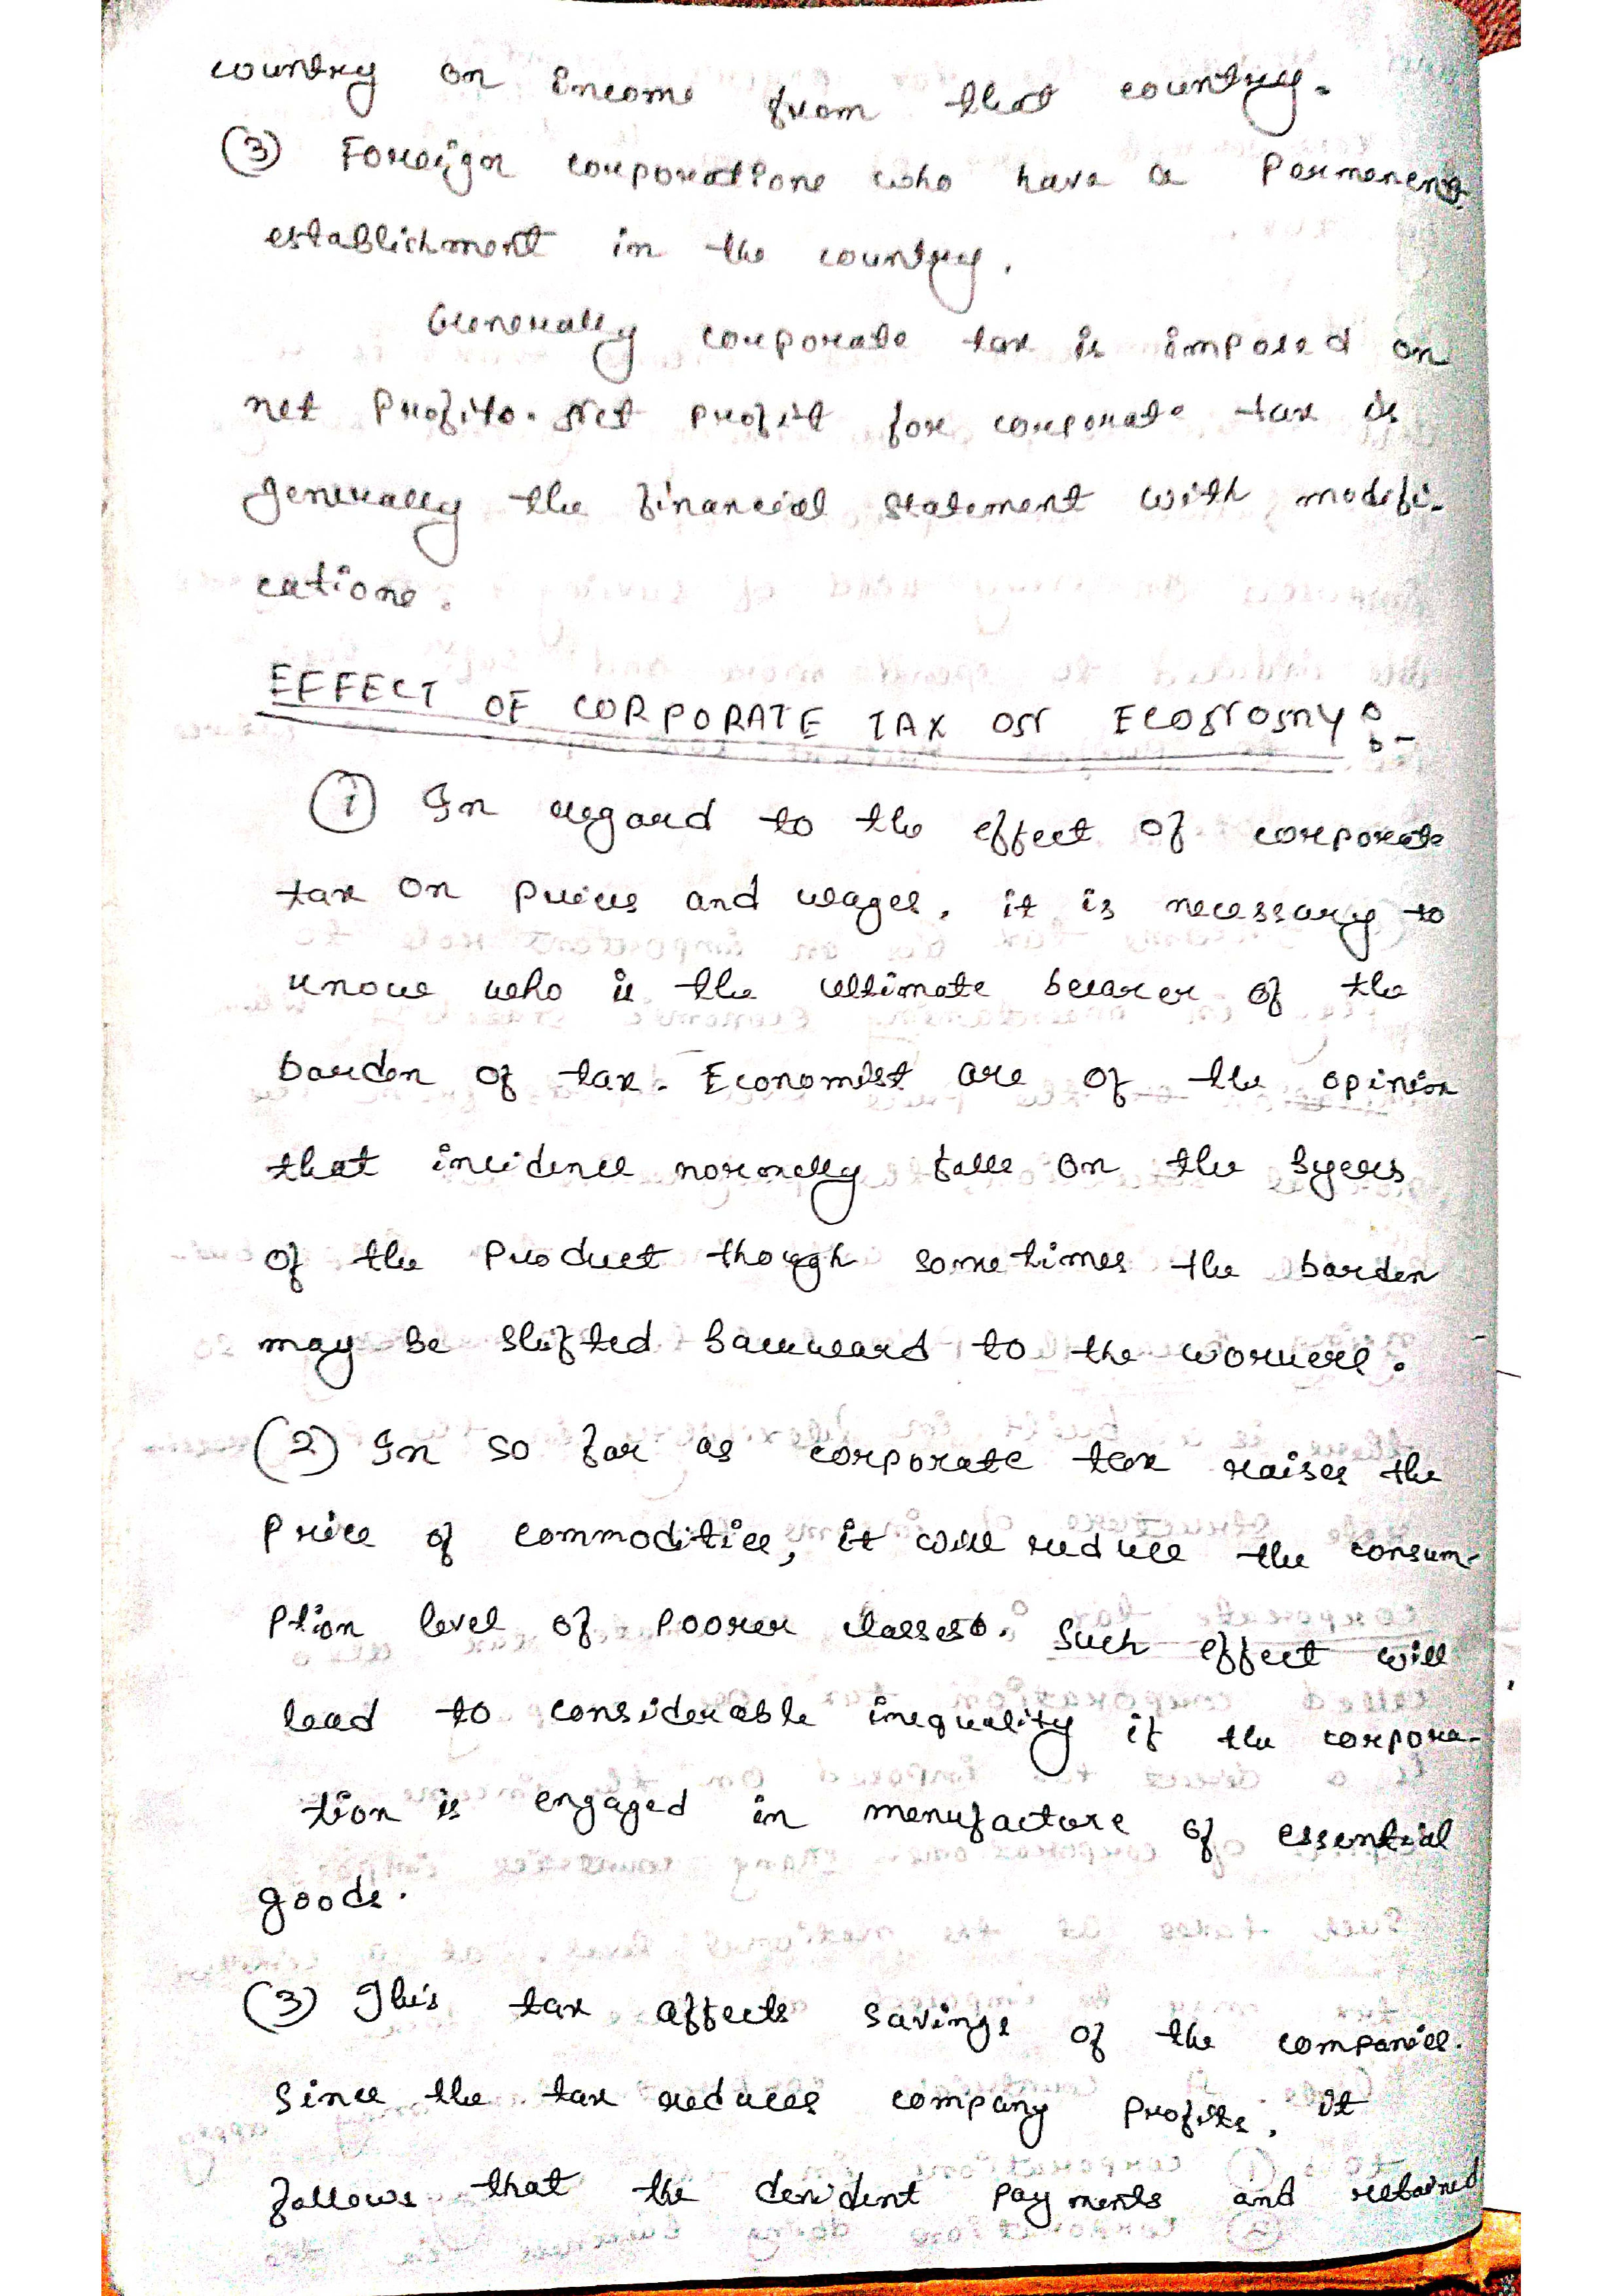 country on income from that country.
(3) Foreign corporations who have a Permanent
establishment in the country.
Generally corporate tax is imposed on
net Profits. Net Profit for corporate tax is
generally the financial statement with modifi-
cations.
EFFECT OF CORPORATE TAX ON ECONOMY :-
(i) In regard to the effect of corporate
tax on prices and wages, it is necessary to
know who is the ultimate bearer of the
barden of tax. Economist are of the opinion
that incidence normally falls on the byers
of the Product though sometimes the barden
may be shifted backward to the workers.
(2) In so far as corporate tax raises the
Price of commodities, it will reduce the consum-
ption level of poorer classes. Such effect will
lead to considerable inequality if the corpora-
tion is engaged in manufacture of essential
goods.
(3) This tax affects savings of the companies.
Since the tax reduces company Profits, it
follows that the devident payments and retained